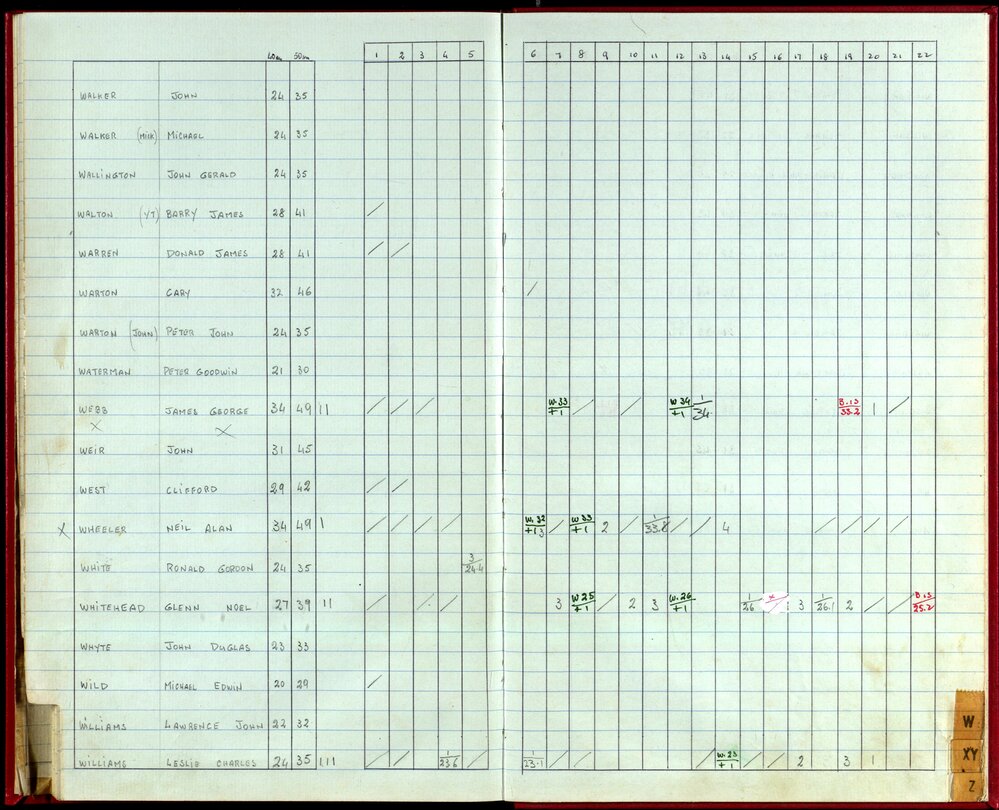 40m 50m 1 2 3 4 5 6 7 8 9 10 11 12 13 14 15 16 17 18 19 20 21 22
WALKER JOHN 24 35
WALKER (MICK) MICHAEL 24 35
WALLINGTON JOHN GERALD 24 35
WALTON (YT) BARRY JAMES 28 41 /
WARREN DONALD JAMES 28 41 / /
WARTON GARY 32 46 /
WARTON (JOHN) PETER JOHN 24 35
WATERMAN PETER GOODWIN 21 30
WEBB JAMES GEORGE 34 49 11 / / / W.33/+1 / / W 34/+1 1/34 B.15/33.2 1 /
X X
WEIR JOHN 31 45
WEST CLIFFORD 29 42 / /
X WHEELER NEIL ALAN 34 49 1 / / / / W.32/+13 / W33/+1 2 / 1/33.8 / / 4 / / / /
WHITE RONALD GORDON 24 35 3/24.4
WHITEHEAD GLENN NOEL 27 39 11 / / / 3 W25/+1 / 2 3 W.26/+1 1/26 X 3 1/26.1 2 / / B.15/25.2
WHYTE JOHN DUGLAS 23 33
WILD MICHAEL EDWIN 20 29 /
WILLIAMS LAWRENCE JOHN 22 32
WILLIAMS LESLIE CHARLES 24 35 111 / / 1/23.6 / 1/23.1 / / / W.23/+1 / / 2 3 1
W
XY
Z